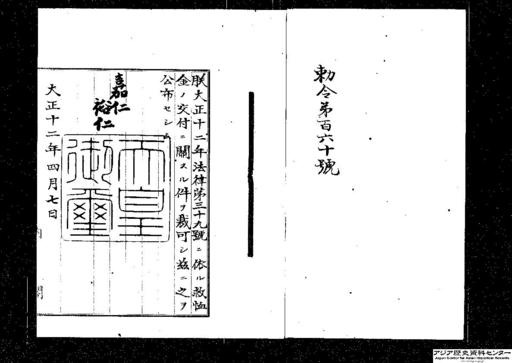 勅令第百六十號
朕大正十二年法律第三十九號ニ依ル救恤
金ノ交付ニ關スル件ヲ裁可シ茲ニ之ヲ
公布セシム
嘉仁
裕仁
天皇
御璽
大正十二年四月七日
内閣
アジア歴史資料センター
Japan Center for Asian Historical Records